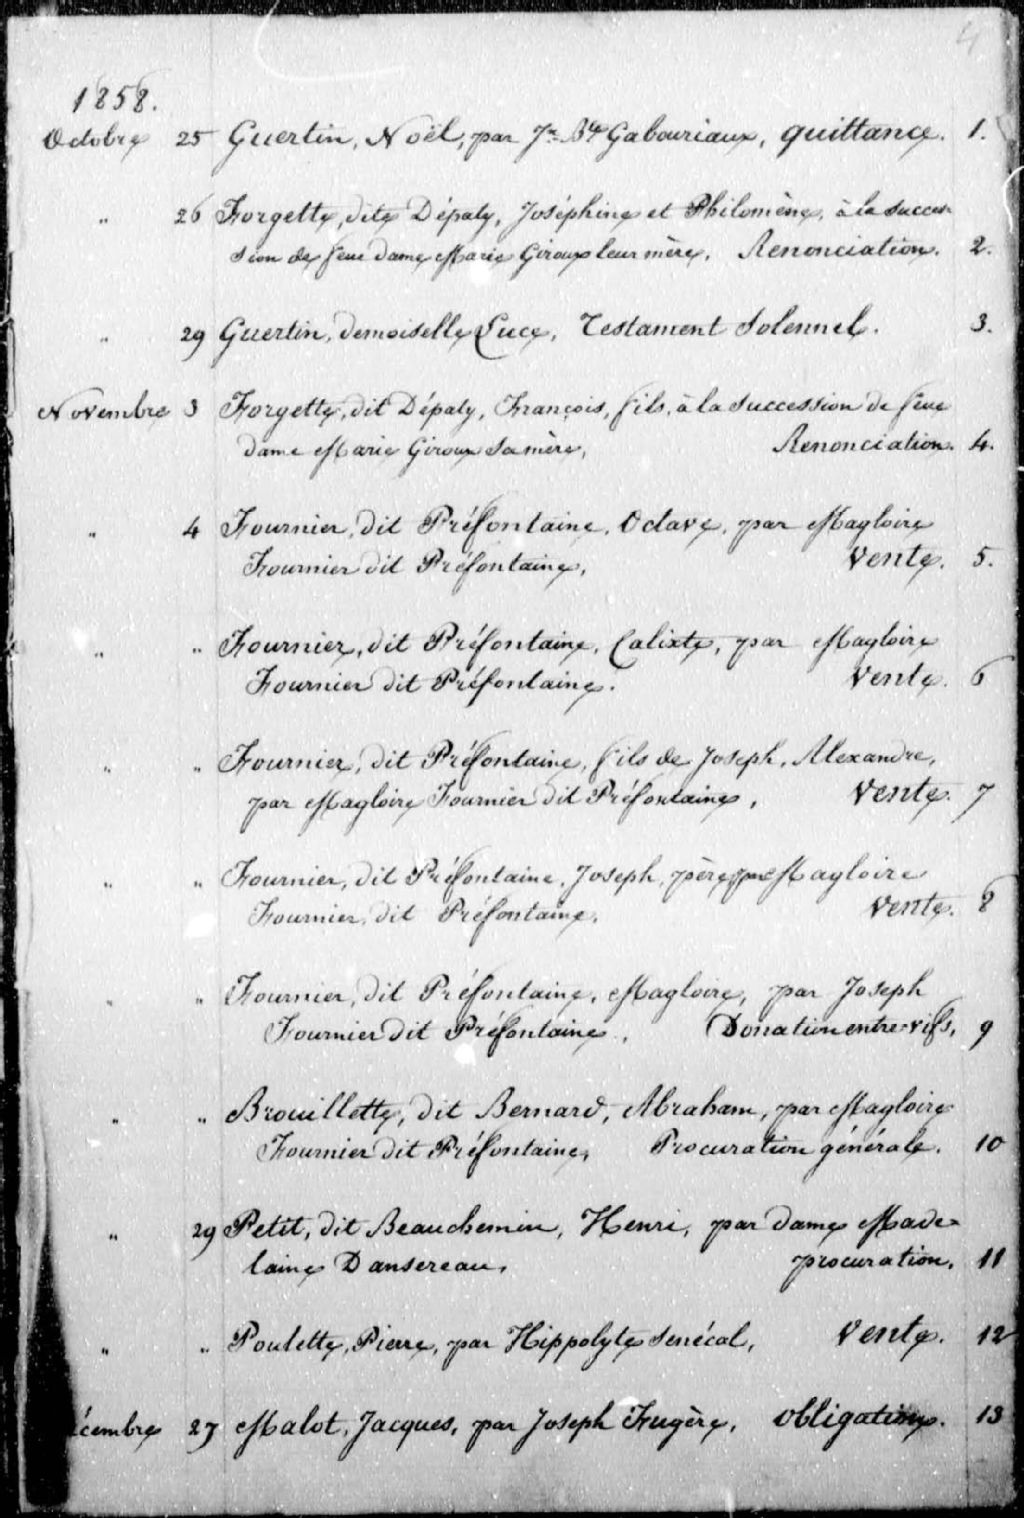 4
1858.
Octobre 25 Guertin, Noël, par Jn Bte Gabouriaux, quittance. 1.
" 26 Forgette, dite Dépaty, Joséphine et Philomène, à la succes-
sion de feue dame Marie Giroux leur mère, Renonciation. 2.
" 29 Guertin, demoiselle Luce, Testament Solennel. 3.
Novembre 3 Forgette, dit Dépaty, François, fils, à la succession de feue
dame Marie Giroux sa mère, Renonciation. 4.
" 4 Fournier, dit Préfontaine, Octave, par Magloire
Fournier dit Préfontaine, Vente. 5.
" " Fournier, dit Préfontaine, Calixte, par Magloire
Fournier dit Préfontaine. Vente. 6
" " Fournier, dit Préfontaine, fils de Joseph, Alexandre,
par Magloire Fournier dit Préfontaine, Vente. 7
" " Fournier, dit Préfontaine, Joseph, père, par Magloire
Fournier, dit Préfontaine, Vente. 8
" " Fournier, dit Préfontaine, Magloire, par Joseph
Fournier dit Préfontaine, Donation entre-vifs, 9
" " Brouillette, dit Bernard, Abraham, par Magloire
Fournier dit Préfontaine, Procuration générale. 10
" 29 Petit, dit Beauchemin, Henri, par dame Made-
laine Dansereau, procuration, 11
" " Poulette, Pierre, par Hippolyte Senécal, Vente. 12
écembre 27 Malot, Jacques, par Joseph Fugère, obligation. 13